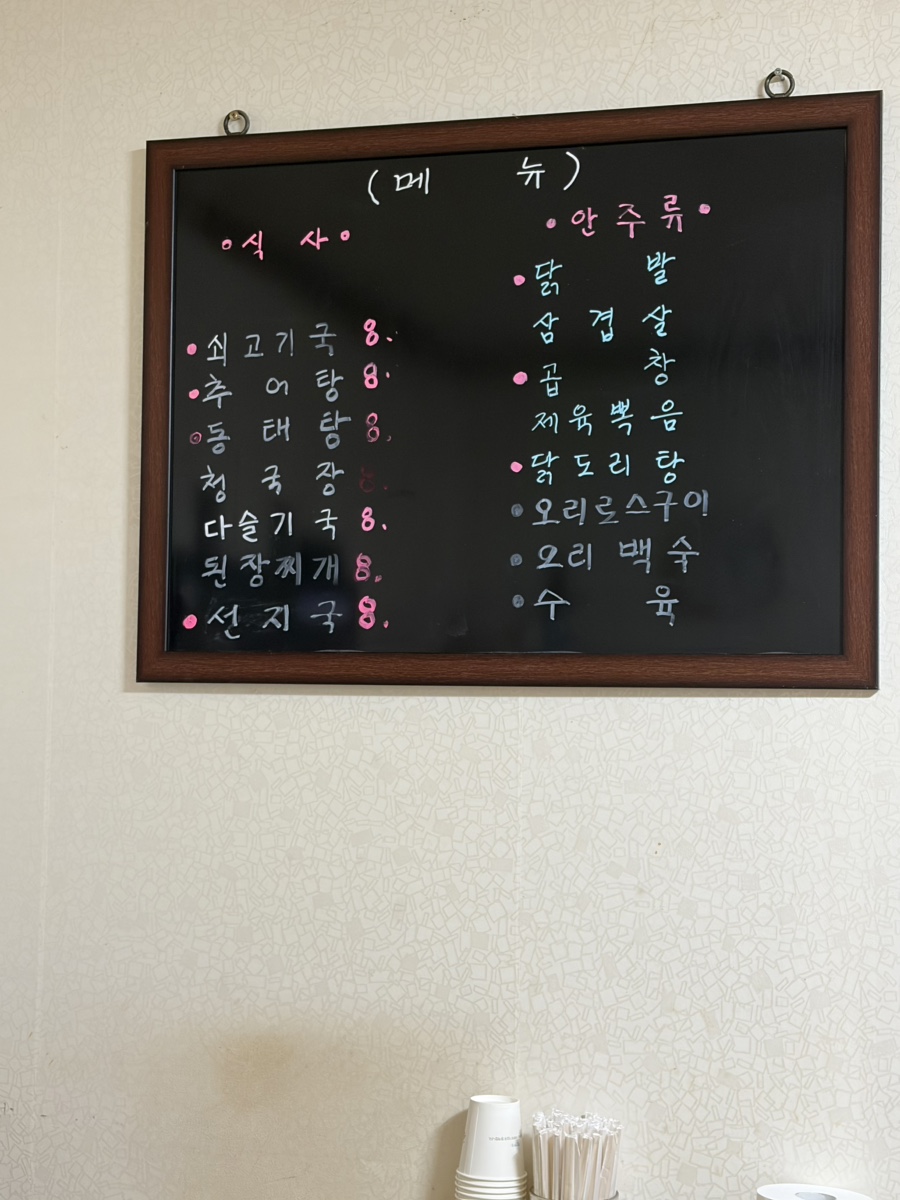 (메 뉴)
•식 사•
•쇠고기국 8.
•추어탕 8.
•동태탕 8.
청국장 8.
다슬기국 8.
된장찌개 8.
•선지국 8.
•안주류•
•닭발
삼겹살
•곱창
제육뽂음
•닭도리탕
•오리로스구이
•오리백숙
•수육